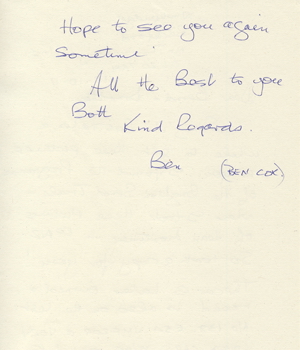 Hope to see you again
Sometime
All the Best to you
Both
Kind Regards.
Ben
(BEN COX).